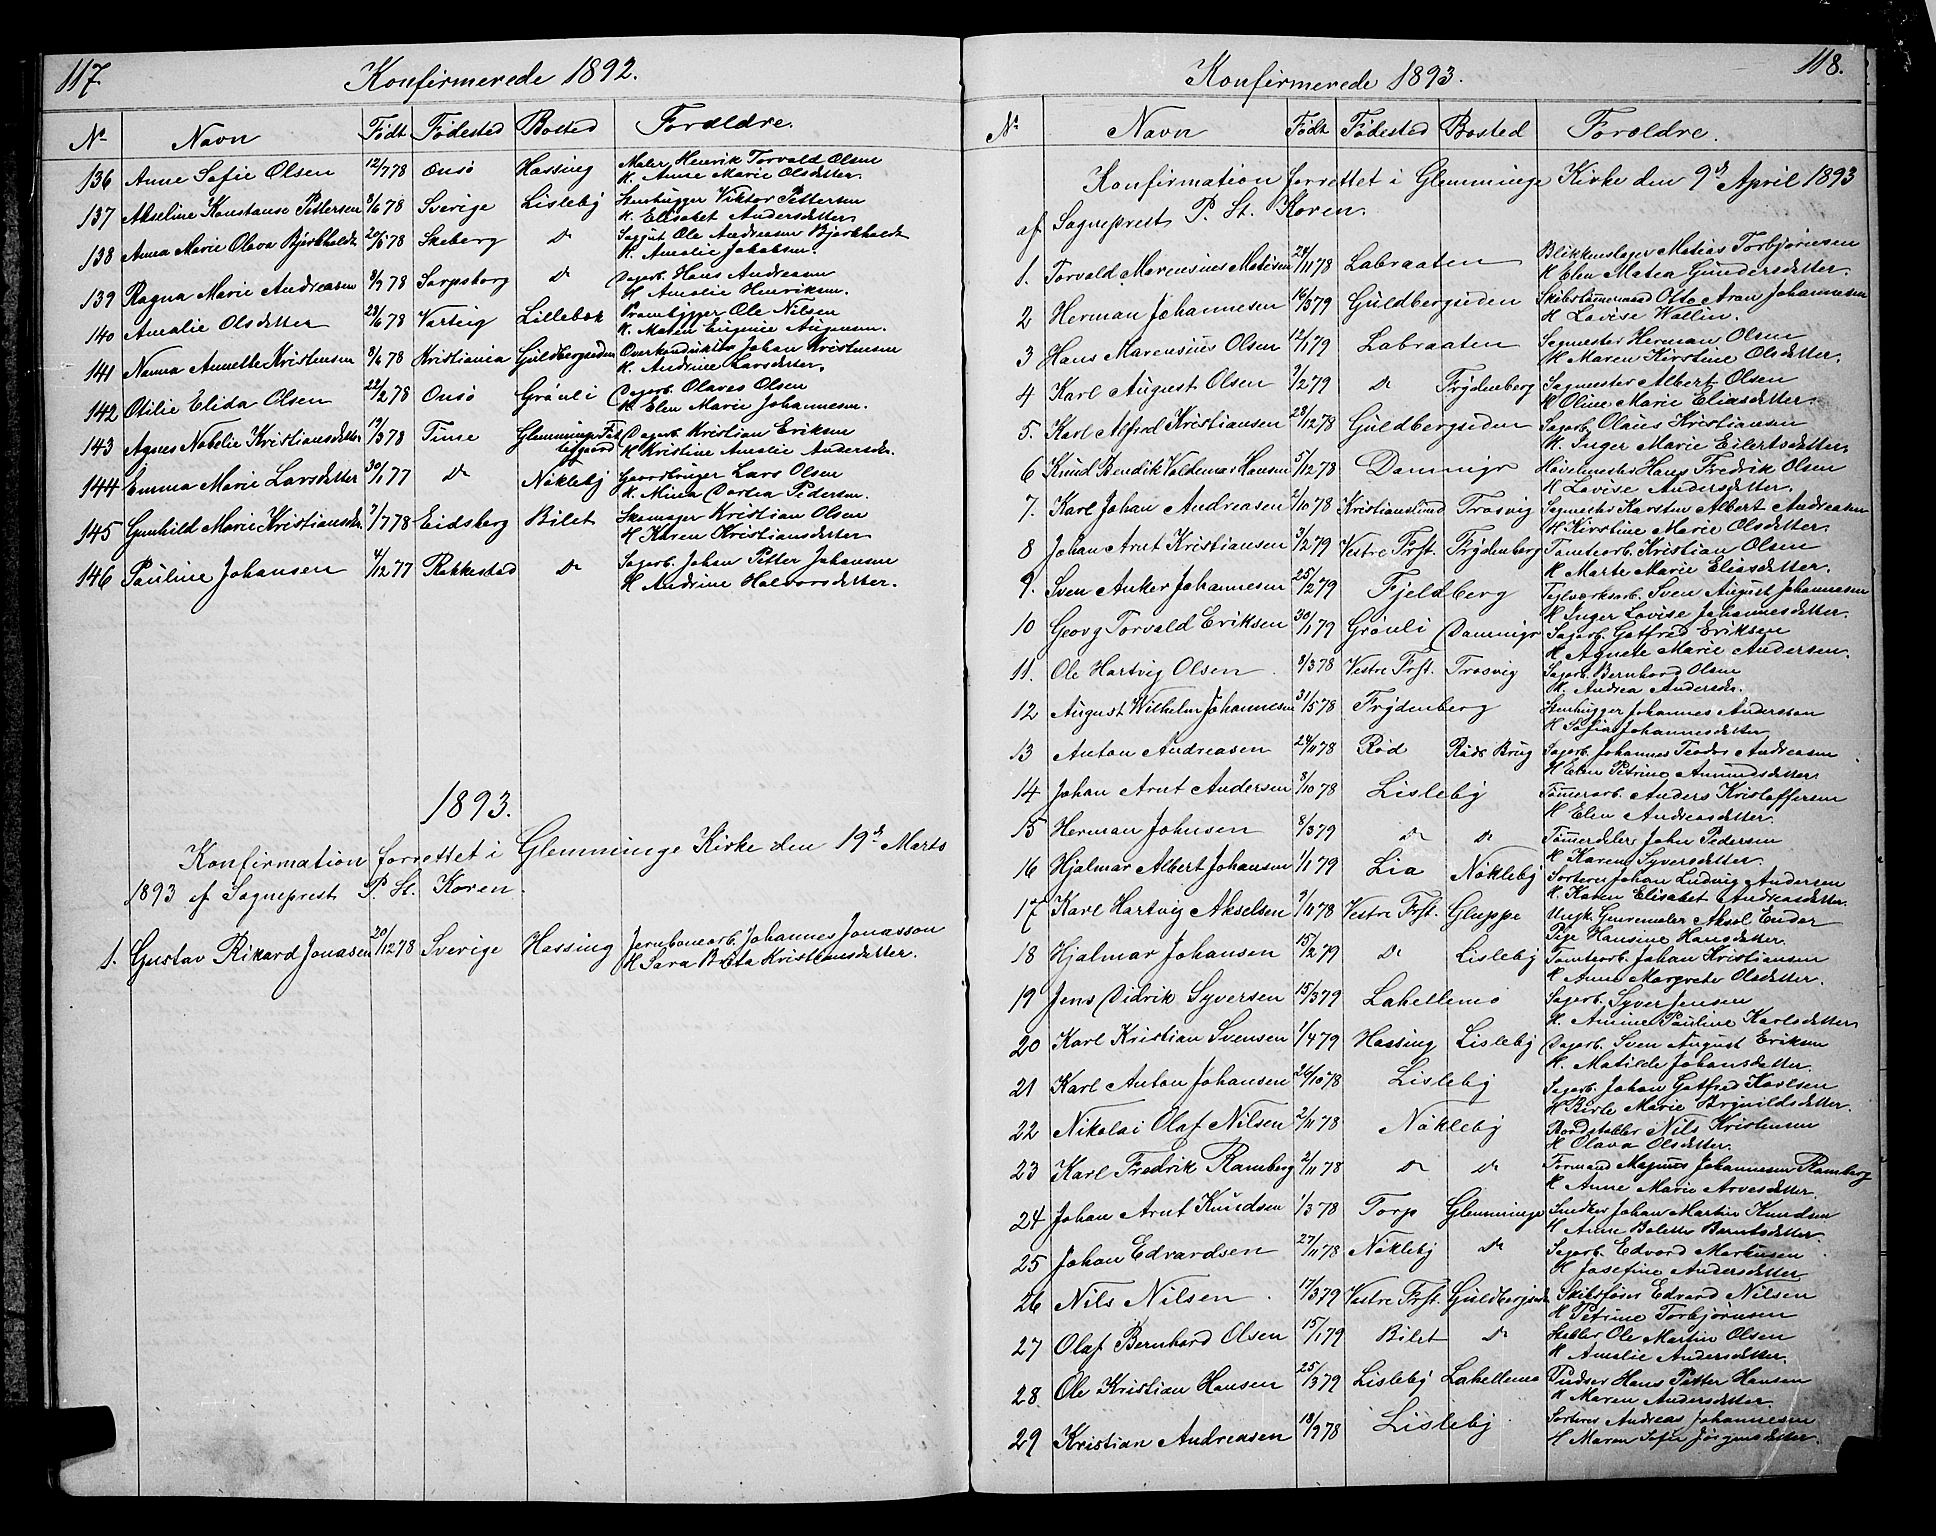 117.
Konfirmerede 1892.
No Navn Født Fødested Bosted Foreldre.
136 Anne Sofie Olsen 12/7 78 Onsø Hassing Maler Henrik Torvald Olsen
H. Anne Marie Olsdatter.
137 Akseline Konstanse Pettersen 3/6 78 Sverige Lislebÿ Stenhugger Viktor Pettersen
H. Elisabet Andersdatter.
138 Anna Marie Olava Bjerkholdt Skeberg Do Ole Andreasen Bjerkholdt
H. Amalie Jakobsen.
139 Ragna Marie Andreasen 8/9 78 Sarpsborg Do Dagarb. Hans Andreasen
H. Amalie Henriksen.
140 Amalie Olsdatter 28/6 78 Varteig Lillebæk Ole Nilsen
H. Maren Eugenie Augensen.
141 Nanna Annette Kristensen 3/6 78 Kristiania Guldbergsiden Overkonduktør Johan Kristensen
H. Andrine Larsdatter.
142 Otilie Elida Olsen 22/2 78 Onsø Grønli Dagarb. Olaves Olsen
H. Elen Marie Johannesen.
143 Agnes Natalie Kristiansdatter 17/3 78 Tune Glemminge Fat
tigaard Dagarb. Kristian Eriksen
H Kristine Amalie Andersdr.
144 Emma Marie Larsdatter 30/1 77 Do Nøklebÿ Gaardbruger Lars Olsen
H. Mina Dortea Pedersen.
145 Gunhild Marie Kristiansdr. 7/7 78 Eidsberg Bilet Skomager Kristian Olsen
H Karen Kristiansdatter
146 Pauline Johansen 4/12 77 Rakkestad Do Sagarb. Johan Petter Johansen
H Andrine Halvorsdatter.
1893.
Konfirmation forrettet i Glemminge Kirke den 19de Marts
1893 af Sogneprest P. St. Koren.
1. Gustav Rikard Jonasen 20/12 78 Sverige Hassing Jernbanearb. Johannes Jonasson
H Sara Brita Kristiansdatter.
118.
Konfirmerede 1893.
No Navn Født Fødested Bosted Foreldre.
Konfirmation forrettet i Glemminge Kirke den 9de April 1893
af Sogneprest P. St. Koren.
1. Torvald Marensius Matisen 24/11 78 Labraaten Blikkenslager Matias Torbjørnsen
H Elen Matea Gundersdatter.
2 Herman Johannesen 16/3 79 Guldbergsiden Skibstømmermand Otto Aron Johannesen
H Lovise Wallin.
3 Hans Marensius Olsen 12/1 79 Labraaten Sagmester Herman Olsen
H Maren Kirstine Olsdatter.
4 Karl August Olsen 9/2 79 Do Frÿdenberg Sagmester Albert Olsen
H Oline Marie Eliasdatter.
5. Karl Alfred Kristiansen 28/12 78 Guldbergsiden Sagarb. Olaus Kristiansen
H. Inger Marie Eilertsdatter.
6 Knud Bendik Valdemar Hansen 5/12 78 Damminga Høvelmester Hans Fredrik Olsen
H Lovise Andersdatter.
7. Karl Johan Andreasen 2/10 78 Kristianslund Trosvig Sagmester Karsten Albert Andreasen
H Kirstine Marie Olsdatter.
8 Johan Arnt Kristiansen 3/2 79 Vestre Frst. Frÿdenberg Tomtearb. Kristian Olsen
H Marte Marie Eliasdatter.
9. Sven Anker Johannesen 25/2 79 Fjeldberg Teglverksarb. Sven August Johannesen
H Inger Lovise Johannesdatter.
10 Georg Torvald Eriksen 30/1 79 Grønli Damminga Sagarb. Gotfred Eriksen
H Agnete Marie Andersen.
11. Ole Hartvig Olsen. 3/3 78 Vestre Frst. Trosvig Sagarb. Bernhard Olsen
H. Andrea Andersdr.
12 August Wilhelm Johannesen 31/5 78 Frÿdenberg Stenhugger Johannes Anderssen
H Sofia Johannesdatter.
13 Anton Andreasen 24/11 78 Rød Røds Brug Sagarb. Johannes Teodor Andreasen
H Elen Petrine Amundsdatter.
14 Johan Arnt Andersen 8/10 78 Lislebÿ Tømerarb. Anders Kristoffersen
H Elen Andreasdatter.
15 Herman Johnsen 8/3 79 Do Do Tømerdeler John Pedersen
H Karen Syversdatter.
16 Hjalmar Albert Johansen 1/1 79 Lia Nøklebÿ Sorterer Johan Ludvig Andersen
H. Karen Elisabet Andreasdatter.
17 Karl Hartvig Akselsen 9/11 78 Vestre Frst. Gluppe Ungk. Aksel
Pige Hansine Hansdatter.
18 Hjalmar Johansen 15/2 79 Do Lislebÿ Tomtearb. Johan Kristiansen
H Anne Margrete Olsdatter.
19 Jens Didrik Syversen 15/3 79 Lahellemo Sagarb. Syver Jensen
H. Amine Pauline Karlsdatter
20 Karl Kristian Svensen 1/4 79 Hassing Lislebÿ Dagarb. Sven August Eriksen
H. Matilde Johansdatter.
21 Karl Anton Johansen 26/10 78 Lislebÿ Sagarb. Johan Gotfred Karlsen
H Birte Marie Brynildsdatter.
22 Nikolai Olaf Nilsen 2/11 78 Nøklebÿ Bordstabler Nils Kristensen
H Olava Olsdatter.
23 Karl Fredrik Ramberg 2/11 78 Do Do Formand Magnus Johannesen Ramberg
H Anne Marie Arvesdatter.
24 Johan Arnt Knudsen 1/3 78 Torp Glemminge Snedker Johan Martin Knudsen
H Anne Bolette Berntsdatter
25 Johan Edvardsen 27/11 78 Nøklebÿ Do Sagarb. Edvard Markusen
H Josefine Andersdatter
26 Nils Nilsen. 17/3 79 Vestre Frst. Guldbergsiden Skibsfører Edvard Nilsen
H Petrine Torbjørnsen
27 Olaf Bernhard Olsen 15/1 79 Bilet Do Stabler Ole Martin Olsen
H Amalie Andersdatter.
28. Ole Kristian Hansen 25/3 79 Lislebÿ Lahellemo Hans Petter Hansen
H Maren Andersdatter.
29 Kristian Andreasen 18/9 78 Lislebÿ Sorterer Andreas Johannesen
H Maren Sofie Jørgensdatter.